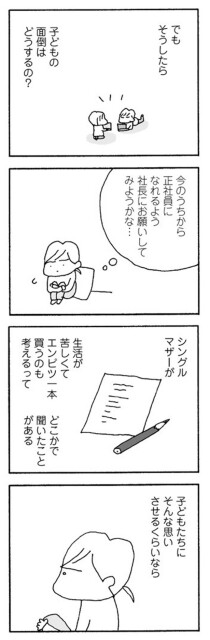 でも
そうしたら
子どもの
面倒は
どうするの？
今のうちから
正社員に
なれるよう
社長にお願いして
みようかな…
シングル
マザーが
生活が
苦しくて
エンピツ一本
買うのも
考えるって
どこかで
聞いたこと
がある
子どもたちに
そんな思い
させるくらいなら